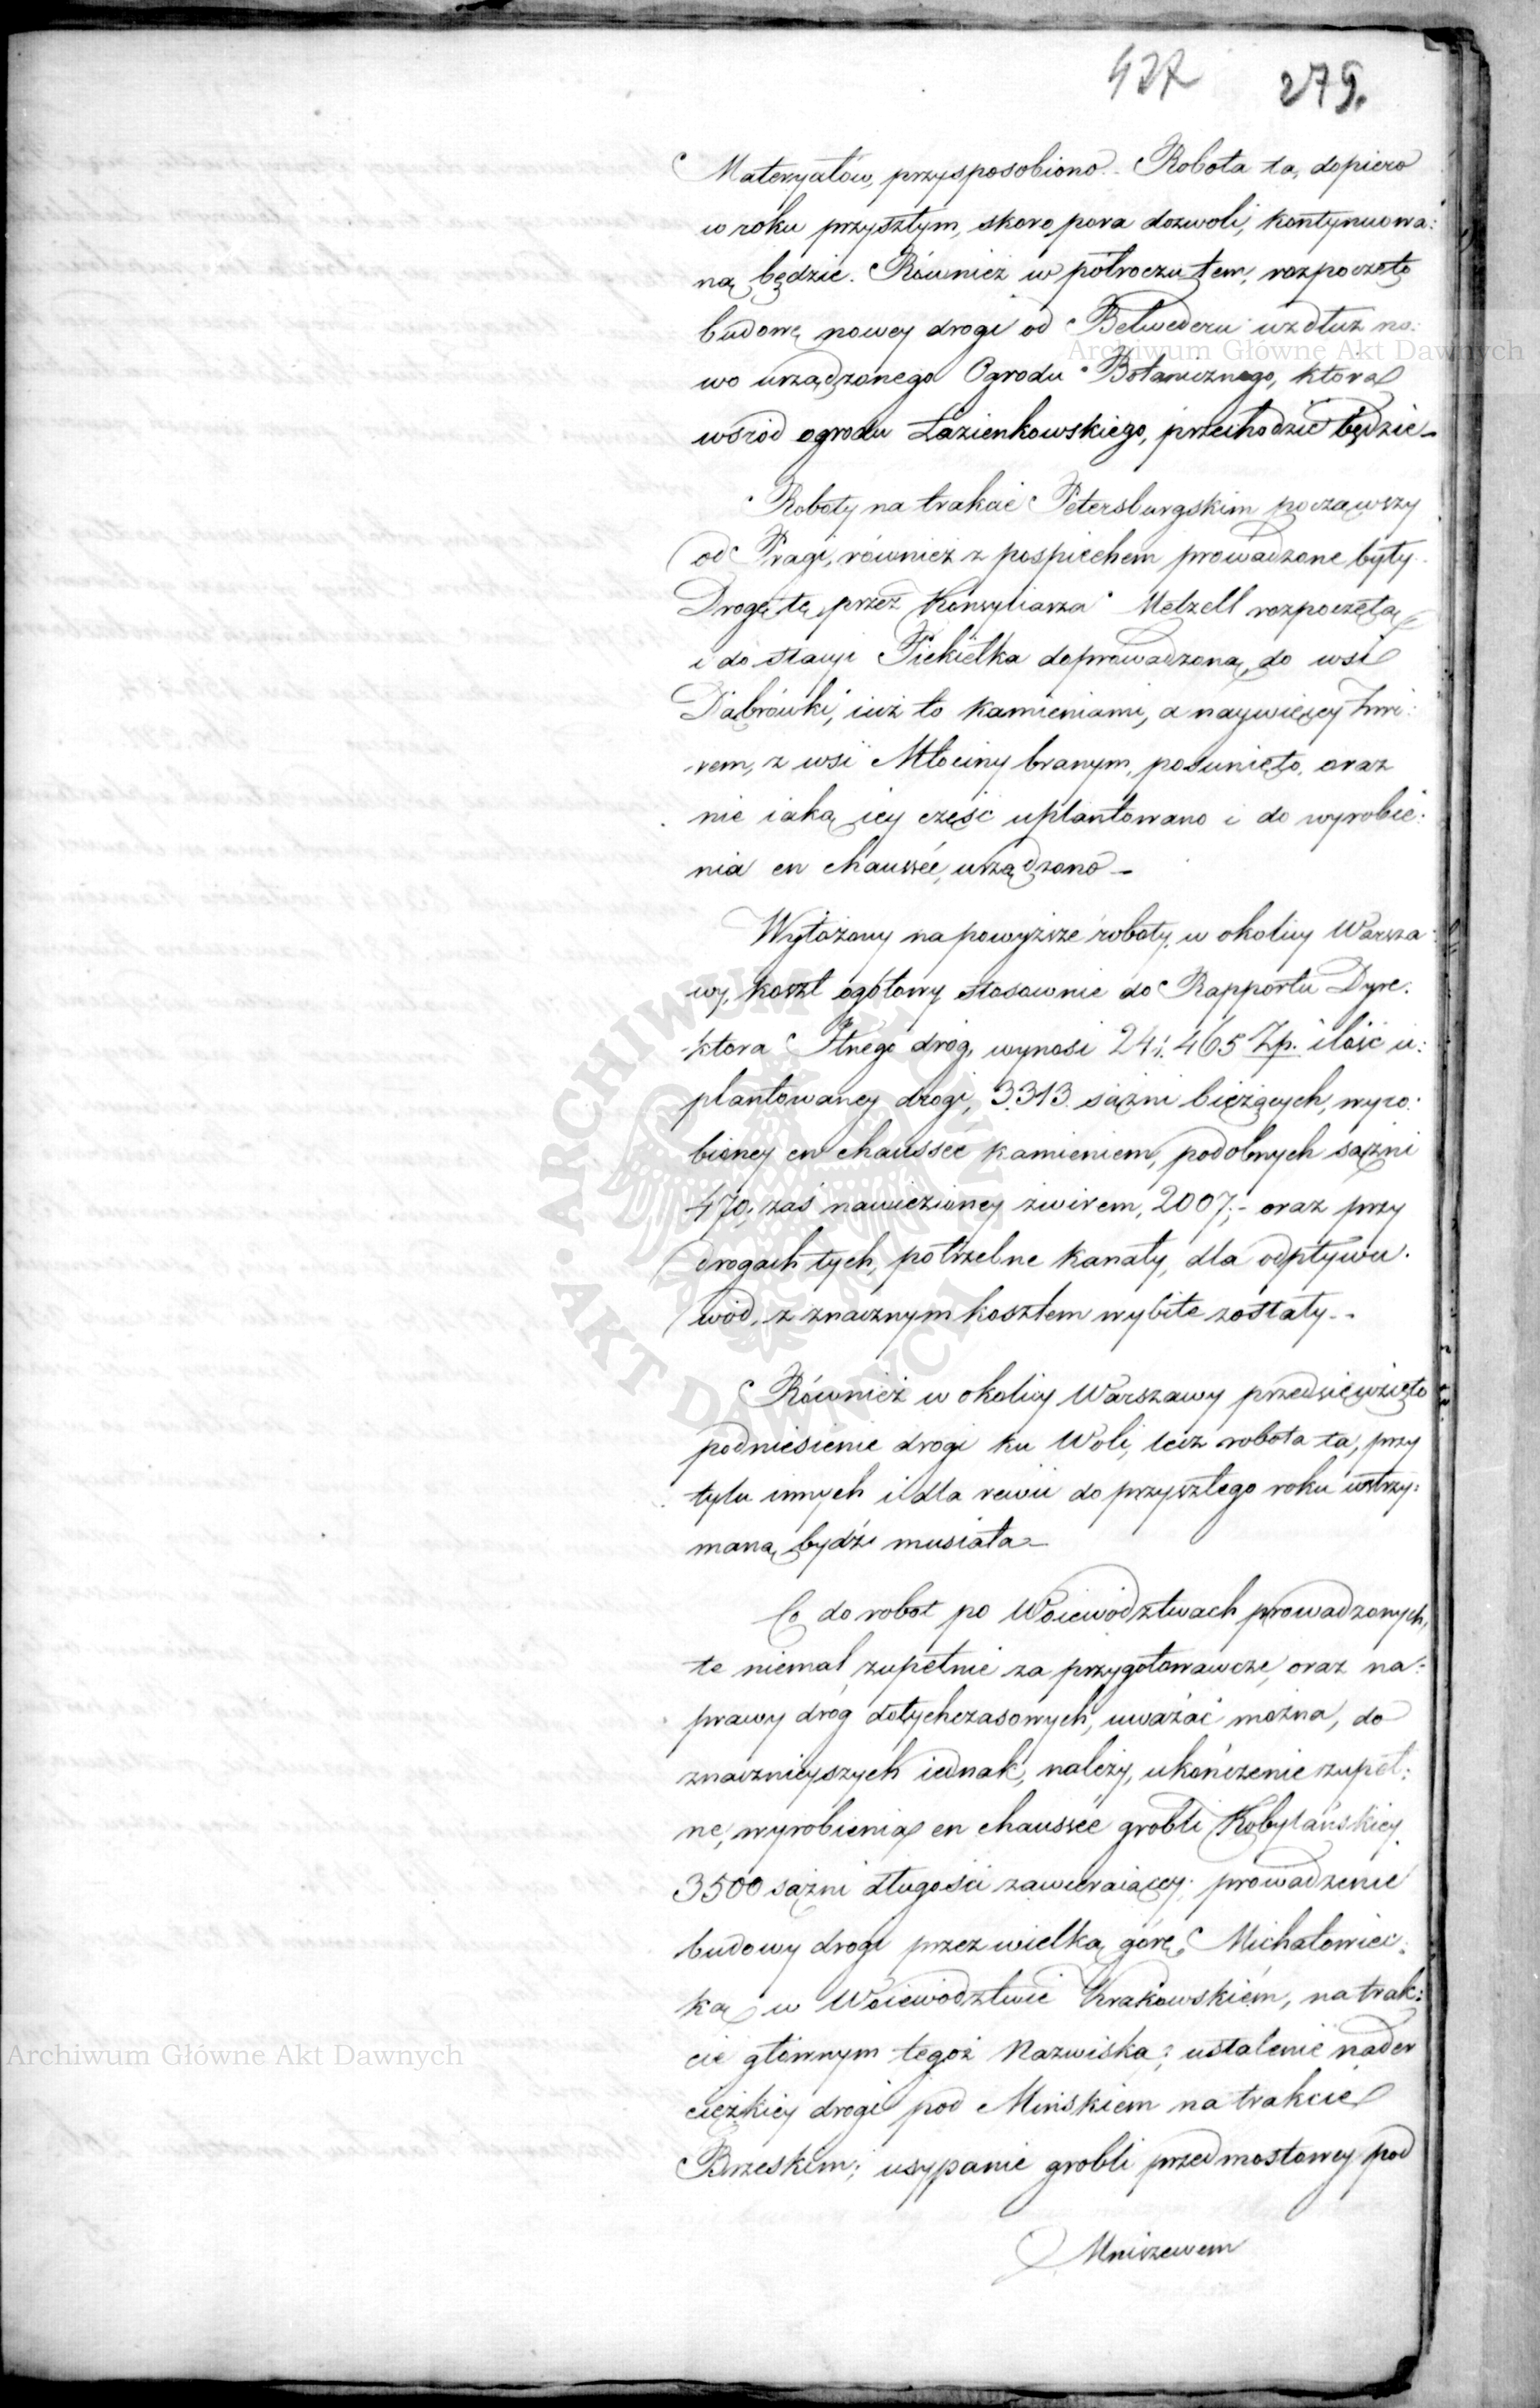 437 279.
Materyałów, przysposobiono. Robota ta, dopiero
w roku przyszłym, skoro pora dozwoli, kontynuowa:
ną będzie. Również w półroczu tem, rozpoczęto
budowę nowey drogi od Belwederu wzdłuż no:
wo urządzonego Ogrodu Botanicznego, która
wśród ogrodu Łazienkowskiego, przechodzić będzie _
Roboty na trakcie Petersburgskim począwszy
od Pragi, również z pospiechem prowadzone były.
Drogę tę, przez Konsyliarza Metzell rozpoczętą
i do stacyi Piekiełka doprowadzoną, do wsi
Dąbrówki, iuż to kamieniami, a naywięcey żwi:
rem, z wsi Młociny branym, posunięto, oraz
nie iaką iey część uplantowano i do wyrobie:
nia en chaussée, urządzono _
Wyłożony na powyższe roboty, w okolicy Warsza:
wy, koszt ogółowy stosownie do Rapportu Dyre:
ktora Jlnego dróg, wynosi 241.465 Zp. ilość u:
plantowaney drogi, 3.313. sążni bieżących, wyro:
bioney en chaussée kamieniem, podobnych sążni
470, zaś nawiezioney żwirem, 2007; - oraz przy
drogach tych, potrzebne kanały, dla odpływu
wód, z znacznym kosztem wybite zostały. -
Również w okolicy Warszawy przedsięwzięto
podniesienie drogi ku Woli, lecz robota ta, przy
tylu innych i dla rewii do przyszłego roku wstrzy:
maną bydź musiała _
Co do robot po Woiewództwach prowadzonych,
te niemal zupełnie za przygotowawcze, oraz na:
prawy dróg dotychczasowych, uważać można, do
znacznieyszych iednak, należy, ukończenie zupeł:
ne, wyrobienia en chaussée grobli Kobylańskiey
3500 sążni długości zawieraiącey; prowadzenie
budowy drogi przez wielką górę Michałowiec:
ką w Woiewództwie Krakowskiém, na trak:
cie głównym tegoż Nazwiska; ustalenie nader
ciężkiey drogi pod Mińskiem na trakcie
Brzeskim; usypanie grobli przedmostowey pod
Mniszewem
Archiwum Główne Akt Dawnych
Archiwum Główne Akt Dawnych
ARCHIWUM GŁÓWNE AKT DAWNYCH